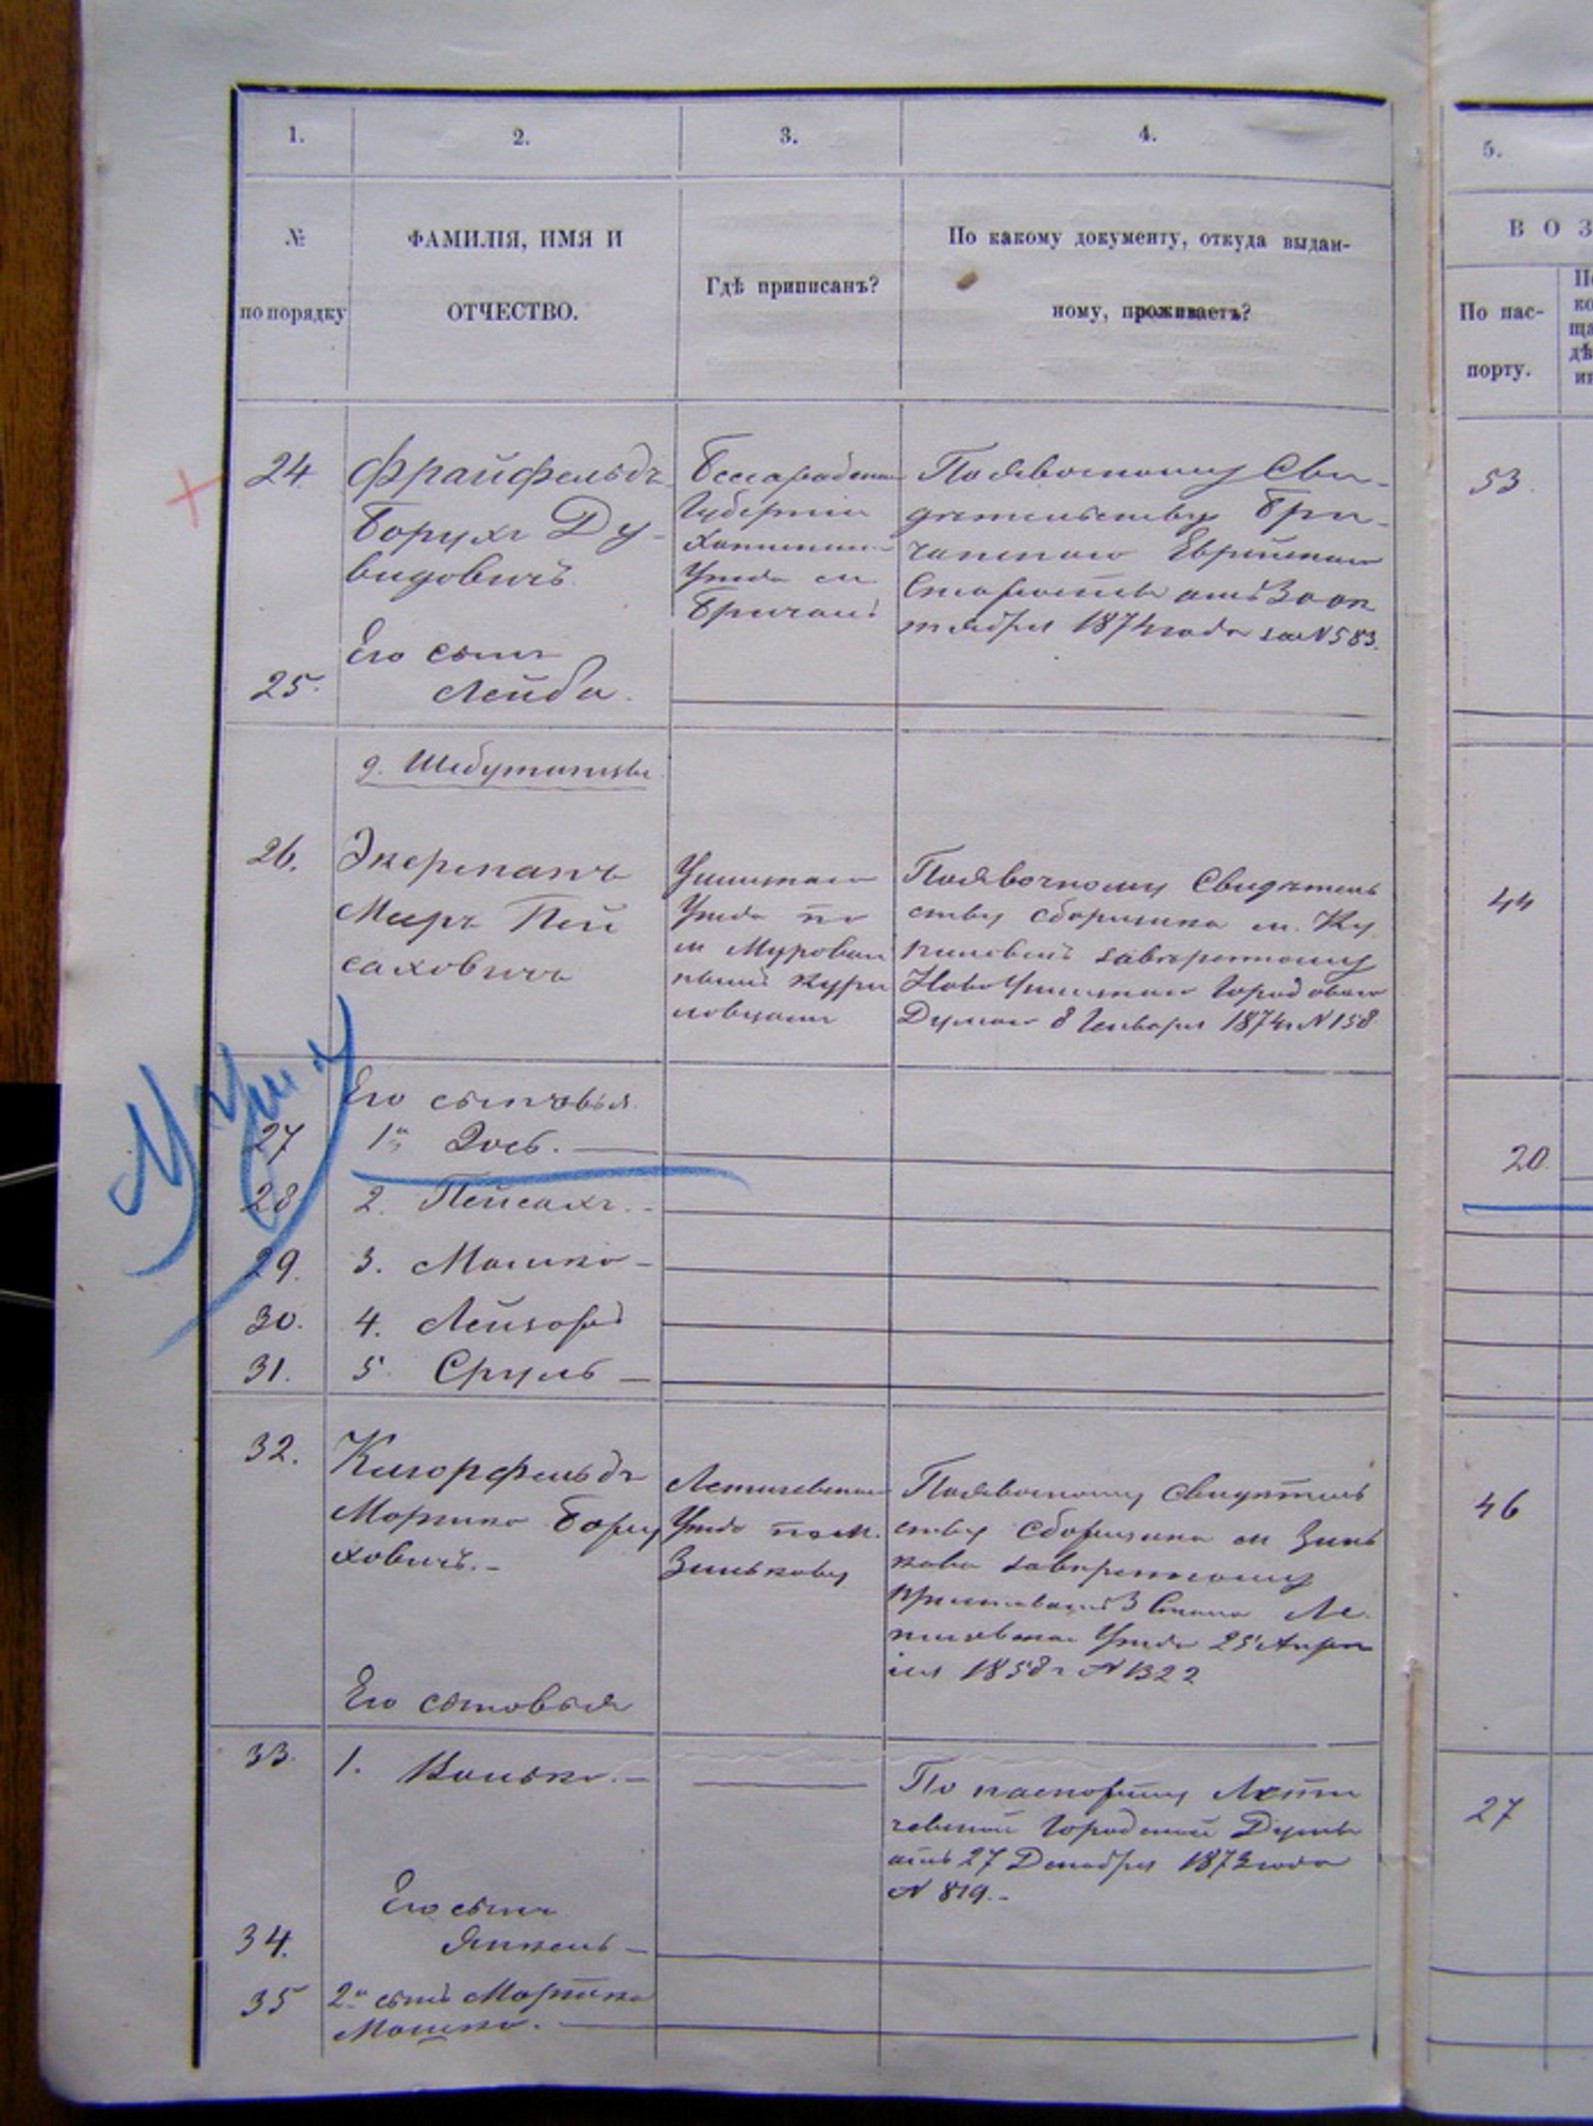 1.
2.
3.
4.
5.
№
по порядку
ФАМИЛІЯ, ИМЯ И
ОТЧЕСТВО.
Гдѣ приписанъ?
По какому документу, откуда выдан-
ному, проживаетъ?
ВОЗ
По пас-
порту.
24.
Фрайфельдъ
Борухъ Ду-
видовичъ
Бессарабской
Губерніи
Хотинскаго
Уѣзда м.
Бричанъ
По явочному Сви-
дѣтельству Бри-
чанскаго Еврейскаго
Старосты отъ 30 ок
тября 1874 года за № 583.
53.
25.
Его сынъ
Лейба.
26.
Экерманъ
Меръ Пей
саховичъ
Ушицкаго
Уѣзда по
м Мурован
нымъ Кури
ловцамъ
По явочному Свидѣтель
ству сборщика м. Ку
засвѣренному
Ново Ушицкою Городовою
Думою 8 Генваря 1874 г № 158
44
Его сыновья
27
1й
20.
28
2. Пейсахъ. -
29.
3. Мошко -
30.
4. Лейзоръ
31.
5 Сруль -
32.
Мортко Бору
ховичъ. -
Летичевскаго
Уѣзда по м.
Зинькову
По явочному Свидѣтель
ству Сборщика м Зинь
кова завѣренному
Приставомъ 3 Стана Ле
тичевскаго Уѣзда 25 Апрѣ
ля 1858 г № 1322
46
Его сыновья
33.
1.
По паспорту Лети
чевской Городской Думы
отъ 27 Декабря 1873 года
№ 819. -
27
Его сынъ
34.
Янкель -
35
2й сынъ Мортка
Мошко. -